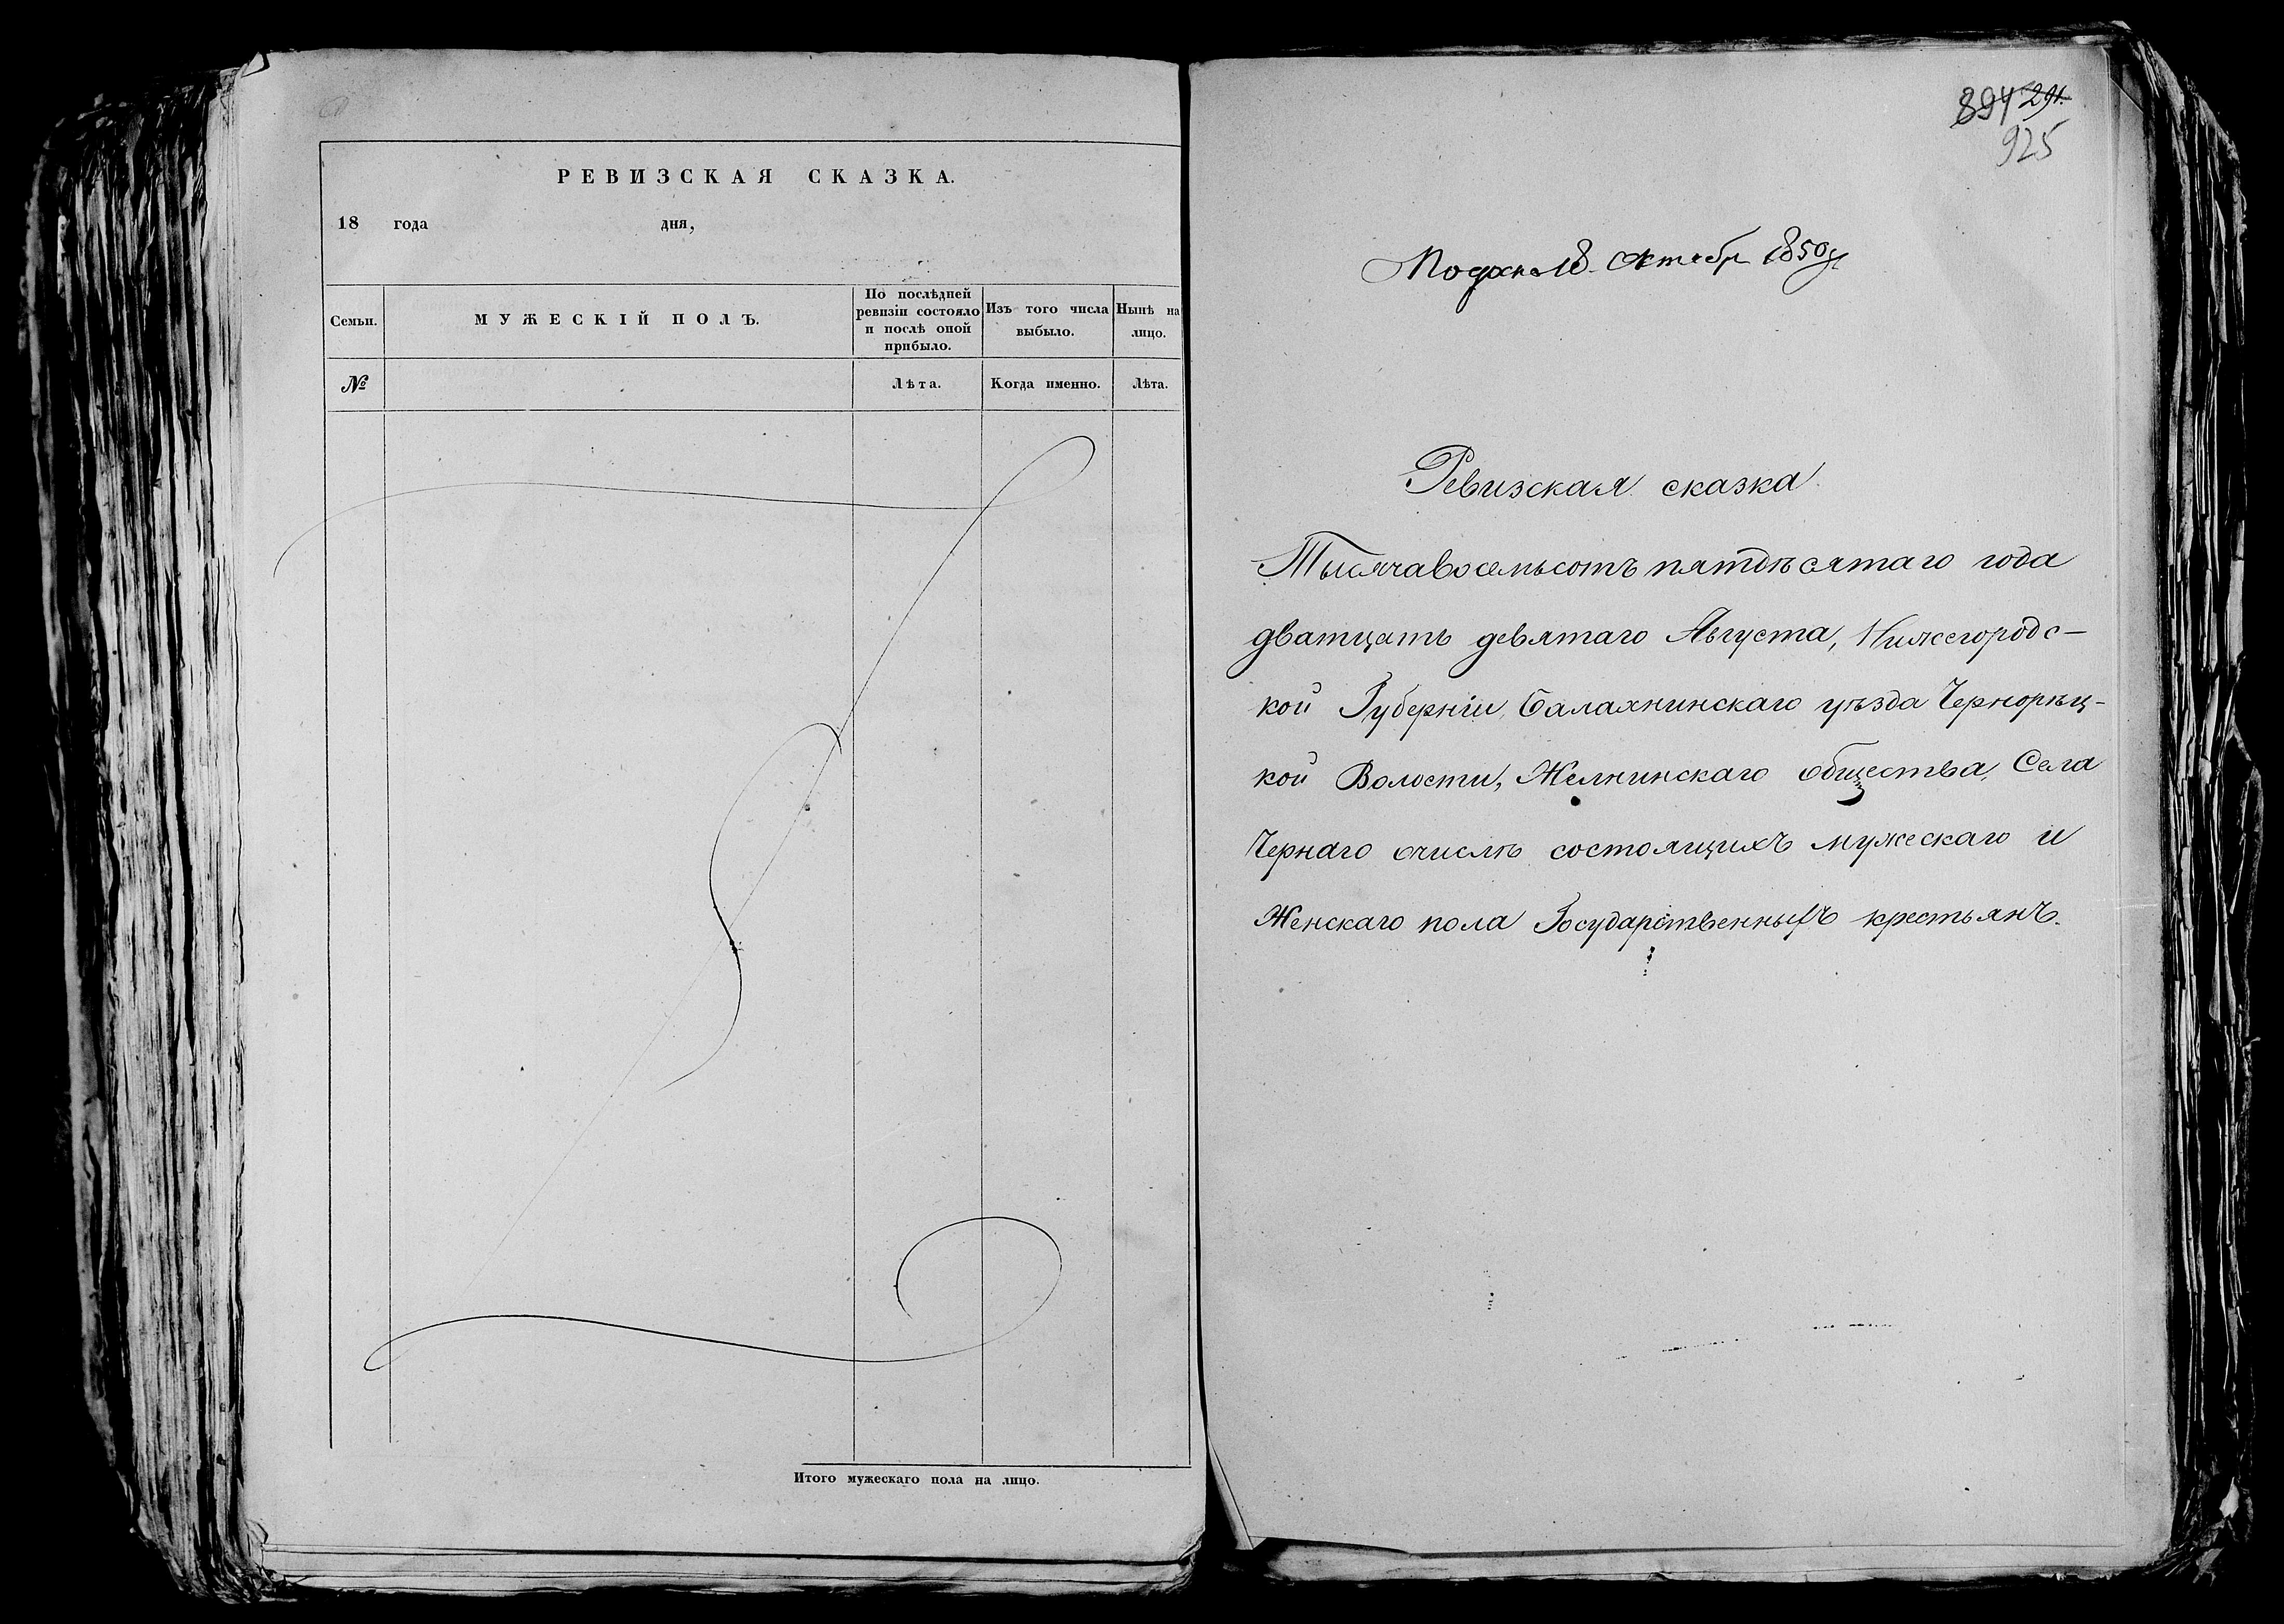 РЕВИЗСКАЯ СКАЗКА.
18 года дня,
Семьи.
МУЖЕСКІЙ ПОЛЪ.
По послѣдней
ревизіи состояло
и послѣ оной
прибыло.
Изъ того числа
выбыло.
Нынѣ на
лицо.
№
Лѣта.
Когда именно.
Лѣта.
Итого мужескаго пола на лицо.
894 291.
925
18 Октябр 1850
Ревизская сказка
Тысячавосемьсотъ пятдѣсятаго года
дватцать девятаго Августа, Нижегородс-
кой Губерніи, Балахнинскаго уѣзда Чернорѣц-
кой Волости, Желнинскаго общества, Села
Чернаго очислѣ состоящихъ мужескаго и
Женскаго пола Государственныхъ крестьянъ.